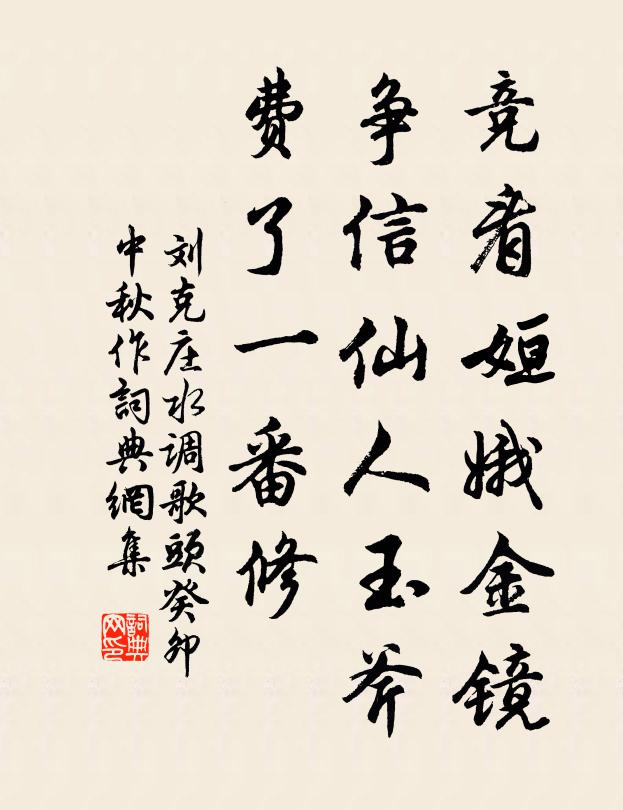 竞看姮娥金镜
争信仙人玉斧
费了一番修
刘克庄水调歌頭癸卯
中秋作詞典網集
詞典网印